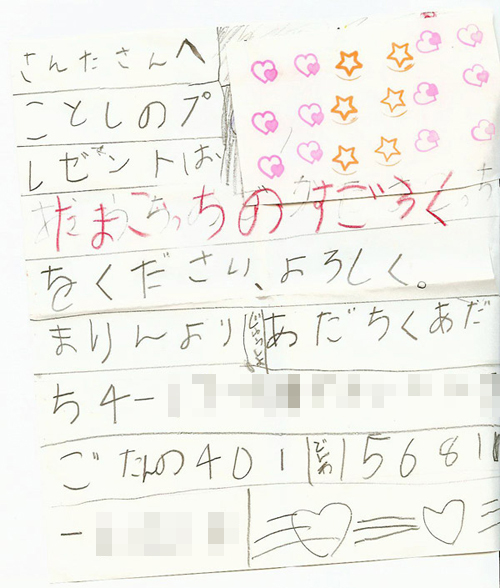 さんたさんへ
ことしのプ
レゼントは
たまごっちのすごろく
をください、よろしく。
まりんより じゅうしょ あだちくあだ
ち4-
ごたんの401 でんわ 5681
-